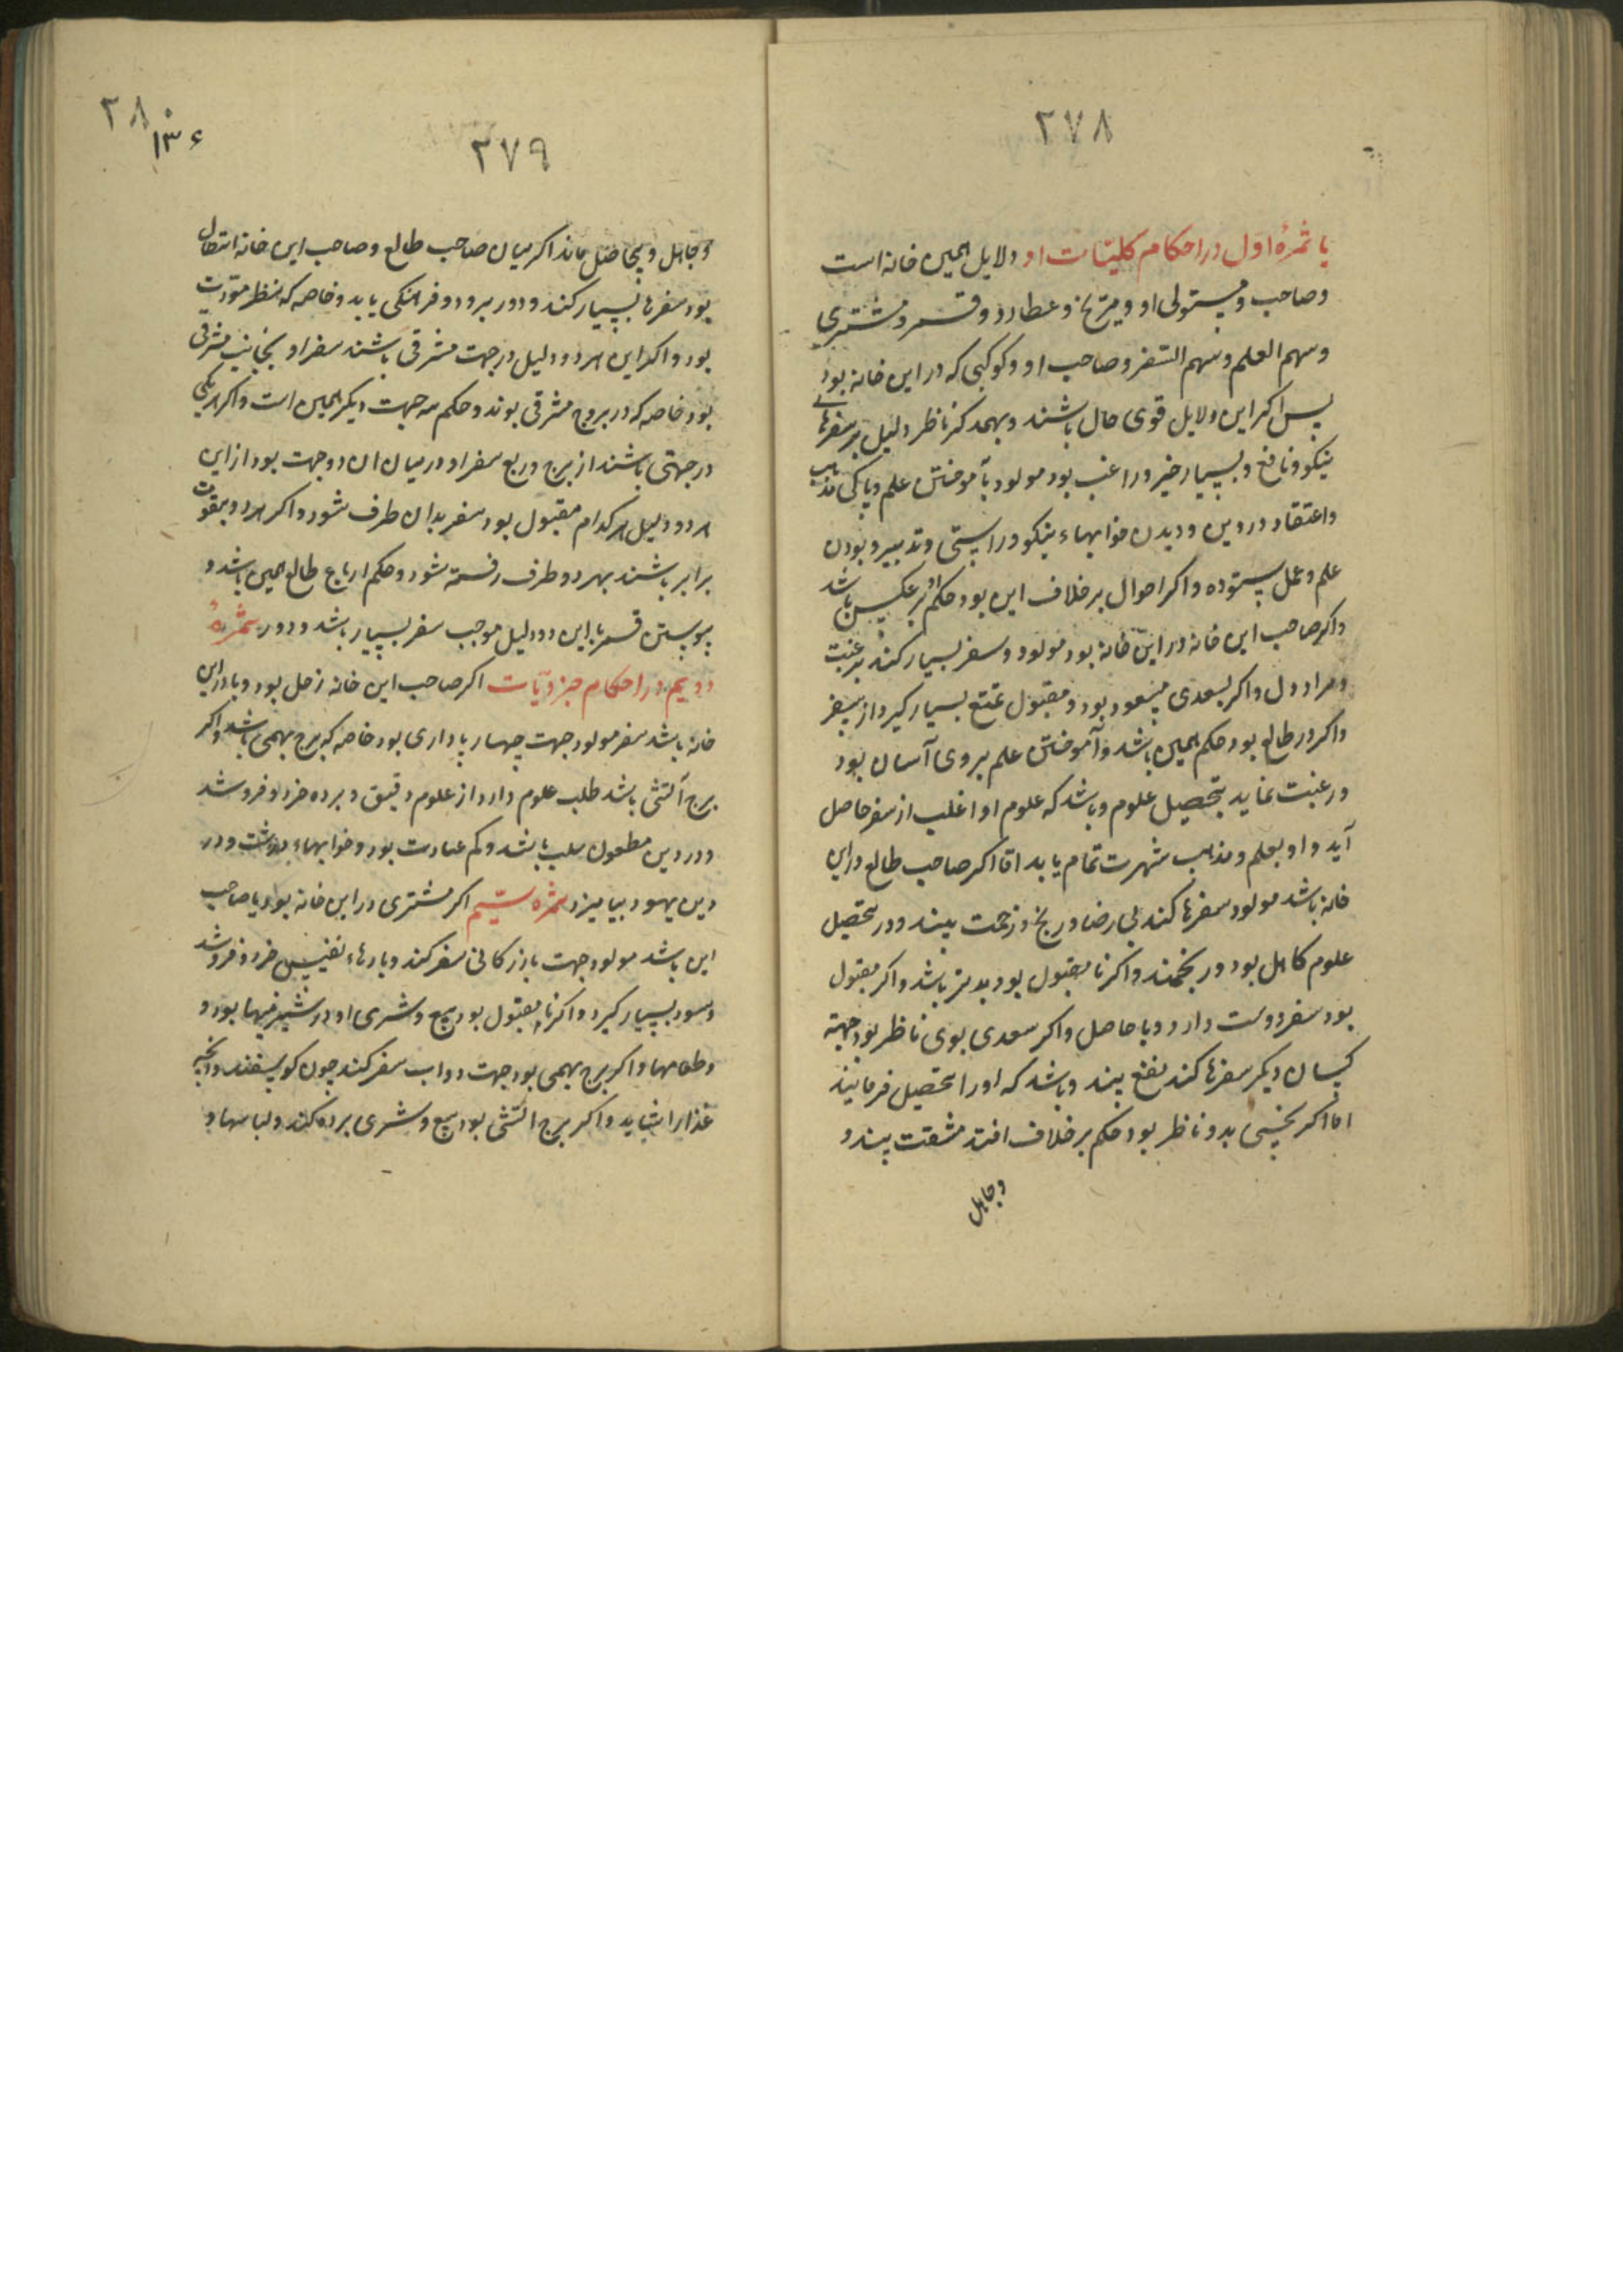 ۲۷۸
یا ثمرهٔ اول در احکام کلیّات او دلایل همین خانه است
و صاحب و مستولی او و مریخ و عطارد و قمر و مشتری
و سهم العلم و سهم السفر و صاحب او و کوکبی که در این خانه بود
پس اکر این دلایل قوی حال باشند و بهمدکر ناظر دلیل بر سفرهای
نیکو و نافع و بسیار خیر و راغب بود مولود بآموختن علم و پاکی مذهب
و اعتقاد در دین و دیدن خوابهاء نیکو و راستی و تدبیر و بودن
علم و عمل ستوده و اکر احوال برخلاف این بود حکم بر عکس باشد
و اکر صاحب این خانه در این خانه بود مولود و سفر بسیار کند برغبت
و مراد دل و اکر بسعدی مسعود بود و مقبول تمتع بسیار کیرد از سفر
و اکر در طالع بود حکم همین باشد و آموختن علم بر وی آسان بود
و رغبت نماید بتحصیل علوم و باشد که علوم او اغلب از سفر حاصل
آید و او بعلم و مذهب شهرت تمام یابد اما اکر صاحب طالع در این
خانه باشد مولود سفرها کند بی رضا و رنج و زحمت بیند و در تحصیل
علوم کاهل بود و رنجمند و اکر نا مقبول بود بدتر باشد و اکر مقبول
بود سفر دوست دارد و با حاصل و اکر سعدی بوی ناظر بود جهته
کسان دیکر سفرها کند نفع بیند و باشد که او را تحصیل فرمایند
اما اکر نحسی بدو ناظر بود حکم برخلاف افتد مشقت بیند و
و جاهل
۲۸۰
۱۳۶
۲۷۹
و جاهل و بی‌حاصل ماند اکر میان صاحب طالع و صاحب این خانه اتصال
بود سفرها بسیار کند و دور برود و فرهنکی یابد و خاصه که نظر مودت
بود و اکر این هر دو دلیل در جهت مشرقی باشند سفر او بجانب مشرق
بود خاصه که در بروج مشرقی بوند و حکم سه جهت دیکر همین است و اکر هر یکی
در جهتی باشند از برج و ربع سفر او در میان ان دو جهت بود از این
هر دو دلیل هر کدام مقبول بود سفر بدان طرف شود و اکر هر دو بقوت
برابر باشند بهر دو طرف رفته شود و حکم ارباع طالع همین باشد و
پیوستن قمر با این دو دلیل موجب سفر بسیار باشد و دور ثمرهٔ
دویم در احکام جزویّات اکر صاحب این خانه زحل بود و یا در این
خانه باشد سفر مولود جهت چهار پا داری بود خاصه که برج بهیمی باشد و اکر
برج آتشی باشد طلب علوم دارد از علوم دقیق و برده خرد و فروشد
و در دین مطعون باشد و کم عبادت بود و خوابهاء درشت و در
دین یهود بیامیزد ثمره سیّم اکر مشتری در این خانه بود یا صاحب
این باشد مولود جهت بازرکانی سفر کند و بارهاء نفیس خرد و فروشد
و سود بسیار کیرد و اکر نا مقبول بود بیع و شری او در شیرینیها بود و
و طعامها و اکر برج بهیمی بود جهت دواب سفر کند چون کوسفند و انچه
غذا را شاید و اکر برج آتشی بود بیع و شری برده کند و لباسها و